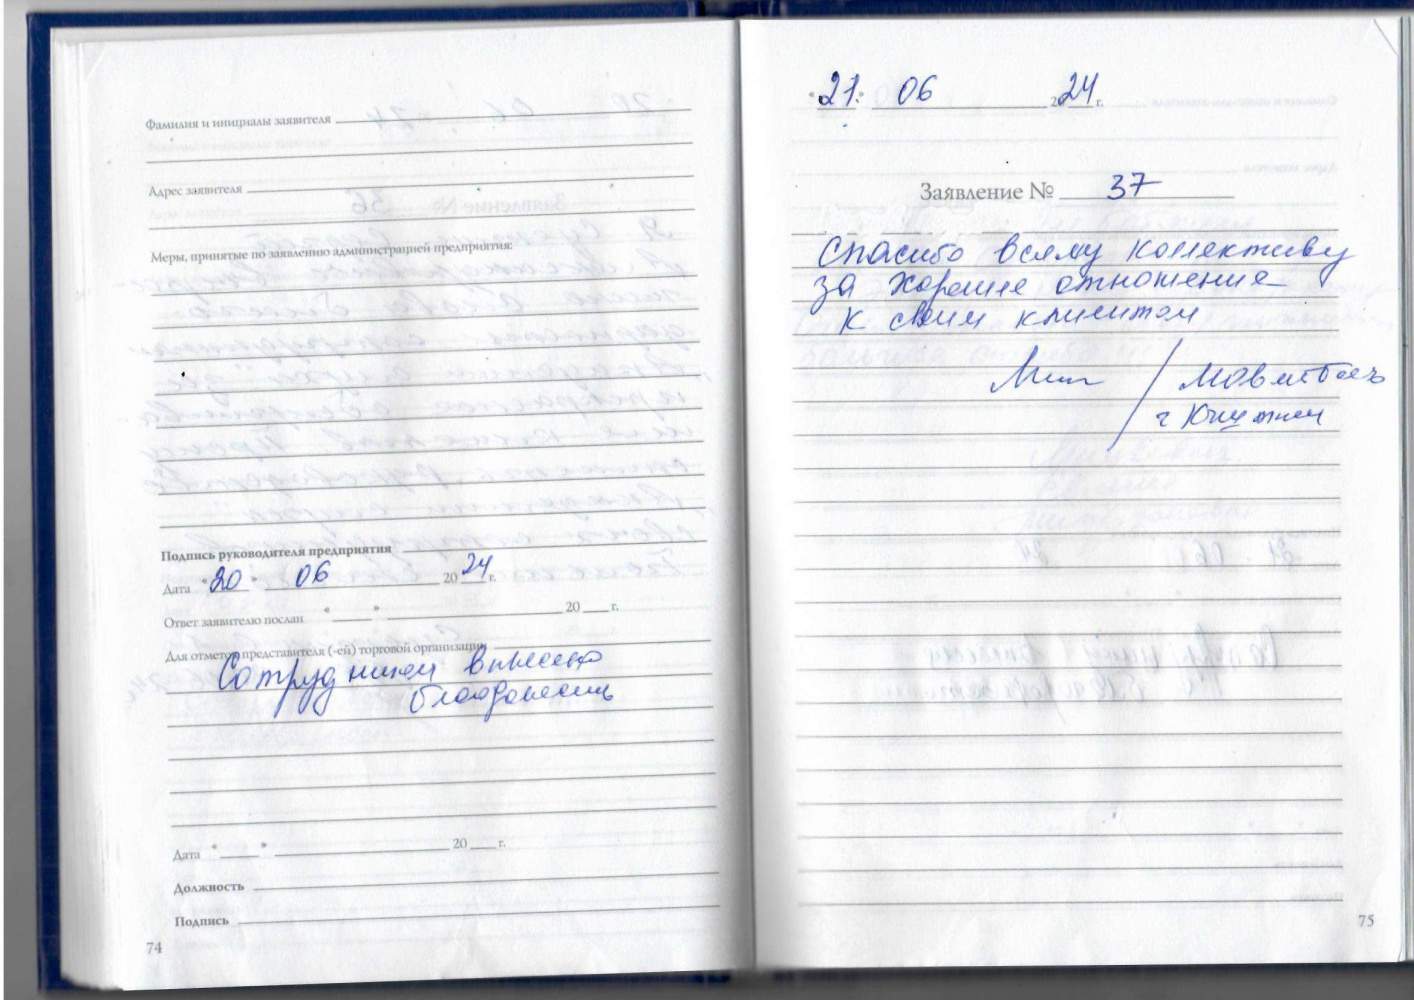 Фамилия и инициалы заявителя
Адрес заявителя
Меры, принятые по заявлению администрацией предприятия:
Подпись руководителя предприятия
Дата "20" 06 2024 г.
Ответ заявителю послан " " 20 г.
Для отметок представителя (-ей) торговой организации
Сотрудникам вынесена
благодарность
Дата " " 20 г.
Должность
Подпись
74
"21" 06 2024 г.
Заявление № 37
Спасибо всему коллективу
за хорошее отношение
к своим клиентам
г Кыштым
75